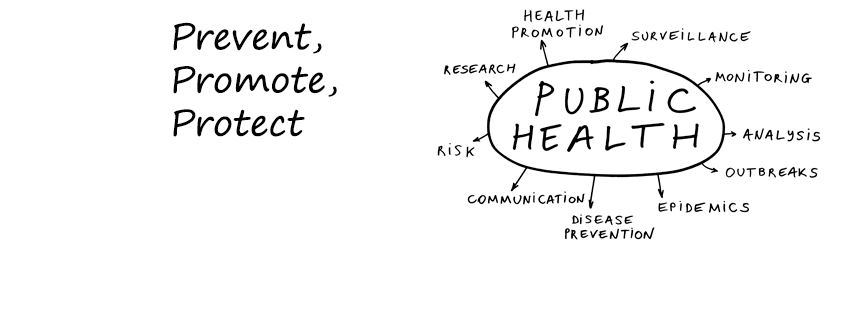 Prevent,
Promote,
Protect
HEALTH
PROMOTION
SURVEiLLANCE
RESEARCH
MONiTORiNG
PUBLiC
HEALTH
ANALYSiS
RiSK
OUTBREAKS
COMMUNiCATiON
EPiDEMiCS
DiSEASE
PREVENTiON